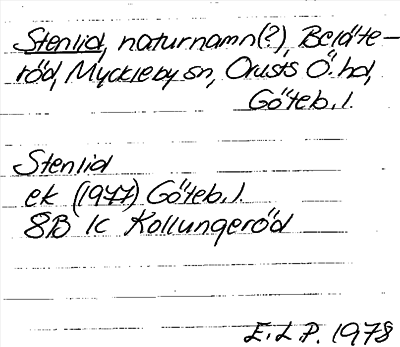 Stenlid, naturnamn(?), Beläte-
röd, Myckleby sn, Orusts Ö. hd,
Göteb. l.
Stenlid
ek (1977) Göteb. l.
8B 1c Kollungeröd
E.L.P. 1978